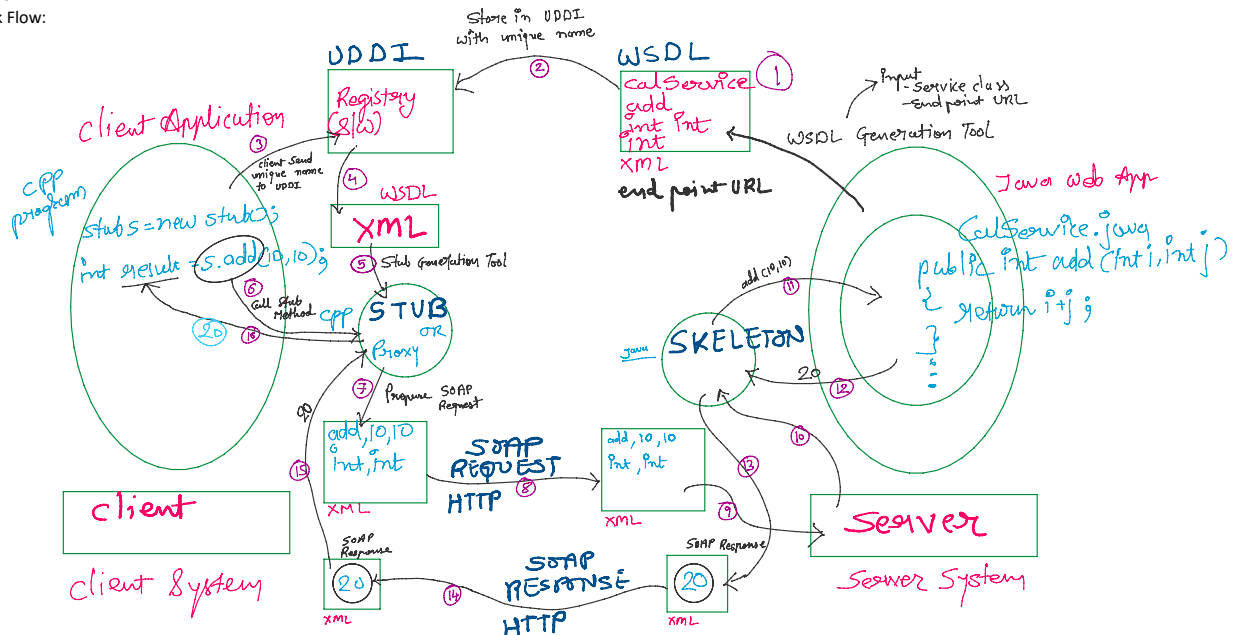 k Flow:
Store in UDDI
with unique name
2
UDDI
Registry
(S/W)
WSDL
CalService
add
int int
int
XML
end point URL
1
Input
-Service class
-End point URL
WSDL Generation Tool
Client Application
3
client Send
unique name
to UDDI
4
WSDL
XML
5
Stub Generation Tool
CPP
program
stub s=new stub();
int result =s.add(10,10);
6
Call Stub
Method
20
16
CPP
STUB
OR
Proxy
7
Prepare SOAP
Request
add,10,10
int,int
XML
SOAP
REQUEST
8
HTTP
add,10,10
int,int
XML
9
10
Java
SKELETON
add(10,10)
11
20
12
13
Java Web App
CalService.java
public int add(int i,int j)
{
return i+j;
}
Client
Client System
Server
Server System
SOAP Response
20
XML
SOAP
RESPONSE
14
HTTP
SOAP
Response
20
XML
15
20